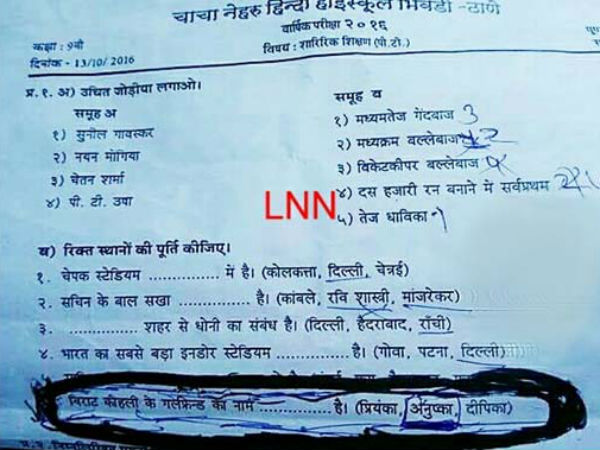 चाचा नेहरु हिन्दी हाईस्कूल भिवंडी -ठाणे
वार्षिक परीक्षा २०१६
कक्षा : 9वी
विषय : शारिरिक शिक्षण (पी.टी.)
दिनांक - 13/10/2016
प्र.१. अ) उचित जोड़ीया लगाओ।
समूह अ
समूह व
१) सुनील गावस्कर
१) मध्यमतेज गेंदबाज 3
२) नयन मोंगिया
२) मध्यक्रम बल्लेबाज 2
३) चेतन शर्मा
३) विकेटकीपर बल्लेबाज
४) पी. टी. उषा
४) दस हजारी रन बनाने में सर्वप्रथम
LNN
५) तेज धाविका
व) रिक्त स्थानों की पूर्ति कीजिए।
१. चेपक स्टेडियम .............. में है। (कोलकत्ता, दिल्ली, चेन्नई)
२. सचिन के बाल सखा .............. है। (कांबले, रवि शास्त्री, मांजरेकर)
३. .............. शहर से धोनी का संबंध है। (दिल्ली, हैदराबाद, राँची)
४. भारत का सबसे बड़ा इनडोर स्टेडियम .............. है। (गोवा, पटना, दिल्ली)
विराट कोहली के गर्लफ्रेन्ड का नाम .............. है। (प्रियंका, अनुष्का, दीपिका)